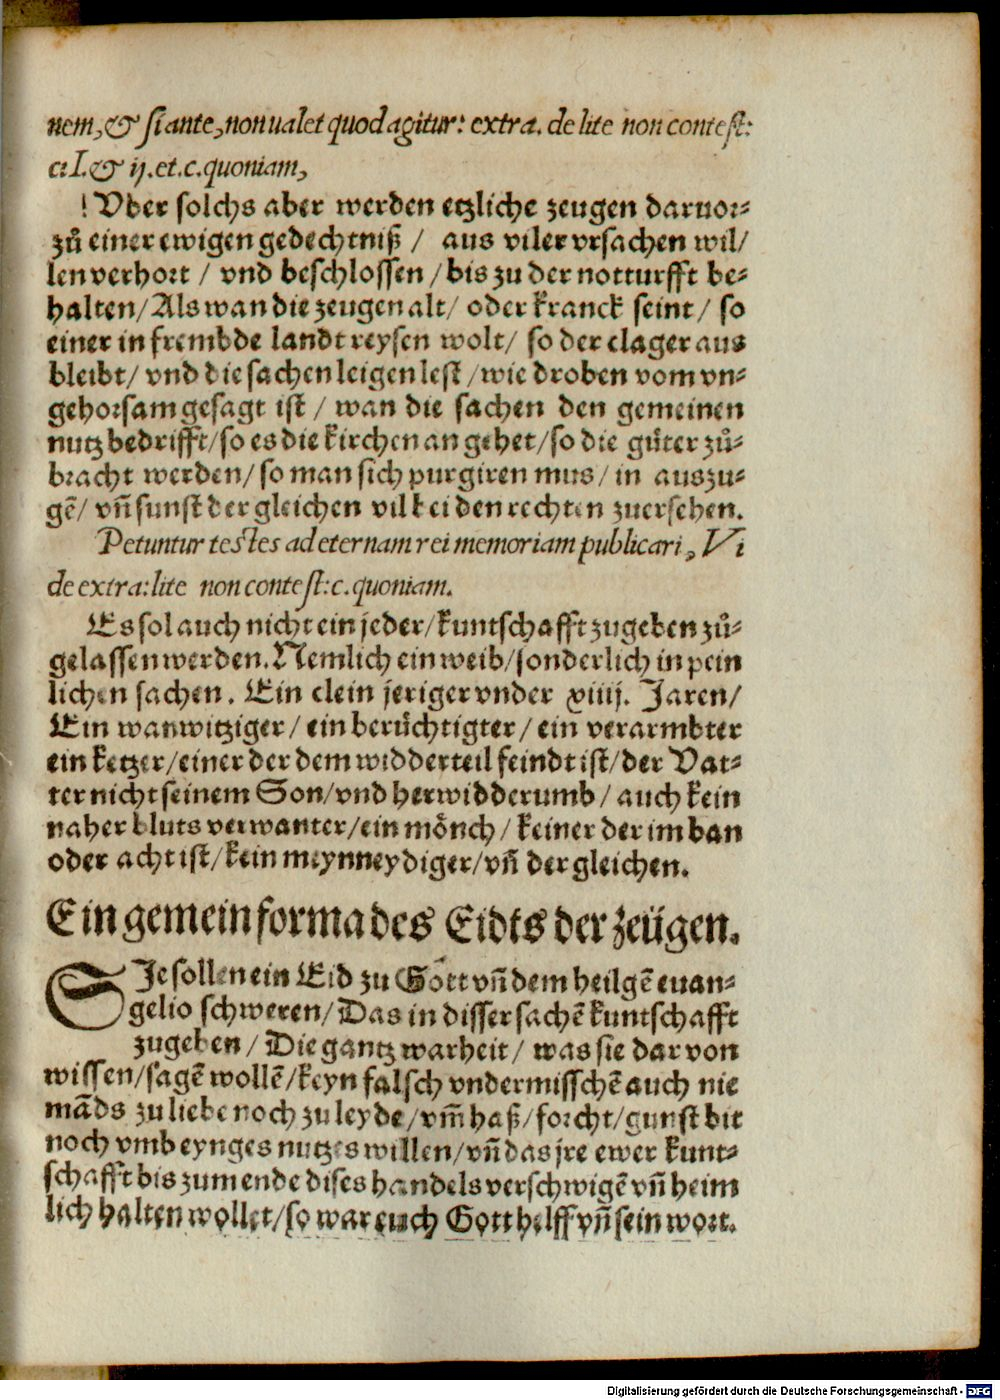 nem,& si ante, non ualet quod agitur: extra. de lite non contest:
c: I. & ij. et. c. quoniam,
! Vber solchs aber werden etzliche zeugen daruor⸗
zů einer ewigen gedechtniß / aus viler vrsachen wil/
len verhort / vnd beschlossen / bis zu der notturfft be⸗
halten/ Als wan die zeugen alt/ oder kranck seint/ so
einer in frembde landt reysen wolt/ so der clager aus
bleibt/ vnd die sachen leigen lest / wie droben vom vn⸗
gehorsam gesagt ist / wan die sachen den gemeinen
nutz bedrifft/ so es die kirchen an gehet/ so die gůter zů⸗
bracht werden/ so man sich purgiren mus/ in auszu⸗
gē/ vñ sunst der gleichen vil bei den rechten zuersehen.
Petuntur testes ad eternam rei memoriam publicari, Vi
de extra: lite non contest: c. quoniam.
Es sol auch nicht ein jeder/ kuntschafft zugeben zů⸗
gelassen werden. Nemlich ein weib/ sonderlich in pein
lichen sachen. Ein clein jeriger vnder xiiij. Jaren/
Ein wanwitziger/ ein berůchtigter/ ein verarmbter
ein ketzer/ einer der dem widderteil feindt ist/ der Vat⸗
ter nicht seinem Son/ vnd herwidderumb/ auch kein
naher bluts verwanter/ ein mönch/ keiner der im ban
oder acht ist/ kein meynneydiger/ vñ der gleichen.
Ein gemein forma des Eidts der zeügen.
SJe sollen ein Eid zu Gott vñ dem heilgē euan⸗
gelio schweren/ Das in disser sachē kuntschafft
zugeben / Die gantz warheit/ was sie dar von
wissen/ sagē wollē/ keyn falsch vndermisschē auch nie
māds zu liebe noch zu leyde/ vm̄ haß/ forcht/ gunst bit
noch vmb eynges nutzes willen/ vñ das jre ewer kunt⸗
schafft bis zum ende dises handels verschwigē vñ heim
lich halten wollet/ so war euch Gott helff vñ sein wort.
Digitalisierung gefördert durch die Deutsche Forschungsgemeinschaft - DFG